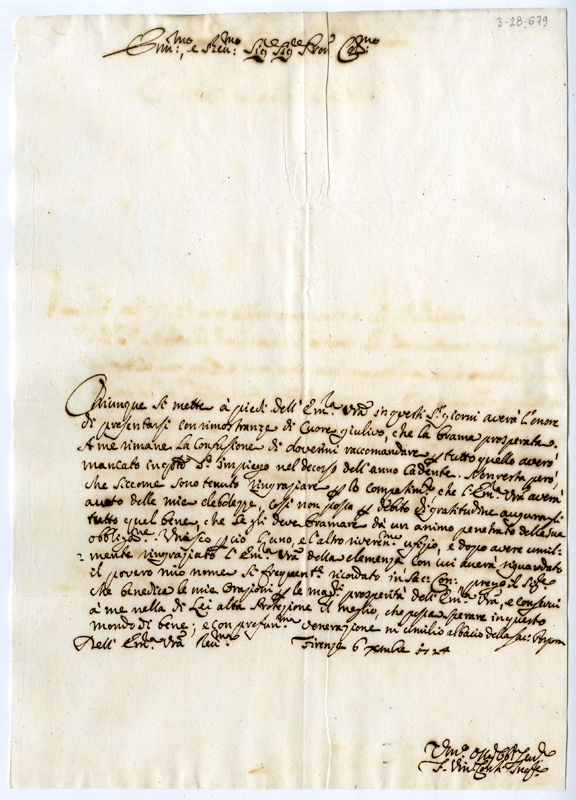 3-28-679
Em:mo, e Rev:mo Sig.re Sig.re Pron Col:mo
Chiunque si mette à piedi dell' Em.za Vra in questi S.ti giorni averà l'onore
di presentarsi con rimostranze di Cuore giulivo, che la brama prosperata.
A me rimane la Confusione di dovermi raccomandare p tutto quello averò
mancato in q.sto S.to Impiego nel decorso dell' anno Cadente. Avverta però,
che siccome sono tenuto ringraziare p lo compatim.to che l'Em.za Vra averà
avuto delle mie debolezze, così non posso p debito di gratitudine augurarli
tutto quel bene, che se gli deve bramare da un animo penetrato della sua
obbligaz.ne Unisco p ciò l'uno, e l'altro riverent.mo ufizio, e dopo avere umil-
-mente ringraziata l'Em.za Vra della clemenza con cui averà riguardato
il povero mio nome sì frequentem.te ricordato in Sac: Con: prego il Sig.re
che benedica le mie Orazioni p le mag.ri prosperità dell' Em.za Vra, e conservi
à me nella di Lei alta Protezione il meglio, che possa sperare in questo
mondo di bene; e con profun.ma venerazione m' umilio al bacio della Sac: Porpora
Dell' Em.za Vra Rev.ma Firenze 6 Xmbre 1724
Um.o Dev.o Obb.mo Serv.re